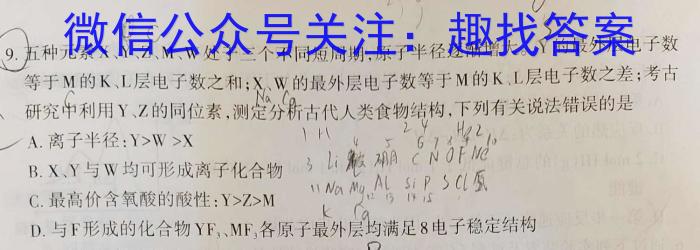 微信公众号关注：趣找答案
9.五种元素X、Y、Z、M、W处于三个不同短周期,原子半径逐渐增大。Y的最外层电子数
等于M的K、L层电子数之和;X、W的最外层电子数等于M的K、L层电子数之差;考古
研究中利用Y、Z的同位素,测定分析古代人类食物结构,下列有关说法错误的是
A.离子半径:Y>W>X
B.X、Y与W均可形成离子化合物
C.最高价含氧酸的酸性:Y>Z>M
D.与F形成的化合物YF₃、MF₃各原子最外层均满足8电子稳定结构
C N O F Ne
Na Mg Al Si P S Cl